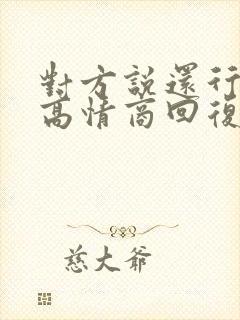 對方說還行
高情商回復
慈大爺